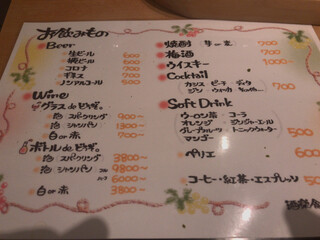 お飲みもの
Beer
・生ビール 600
・瓶ビール 600
・コロナ 700
・ギネス 700
・ノンアルコール 500
Wine
グラスでどうぞ。
・泡 スパークリング 900~
・泡 シャンパン 1300~
・白or赤 700~
ボトルでどうぞ。
・泡 スパークリング 3800~
・泡 シャンパン 9800~
6000~
・白or赤 3800~
焼酎 700
梅酒 700
ウイスキー 1000~
Cocktail
カシス ピーチ
ジン ウォッカ 700
Soft Drink
ウーロン茶・コーラ
オレンジ・ジンジャーエール
グレープフルーツ・トニックウォーター
マンゴー 500
ペリエ 600
コーヒー・紅茶・エスプレッソ 50